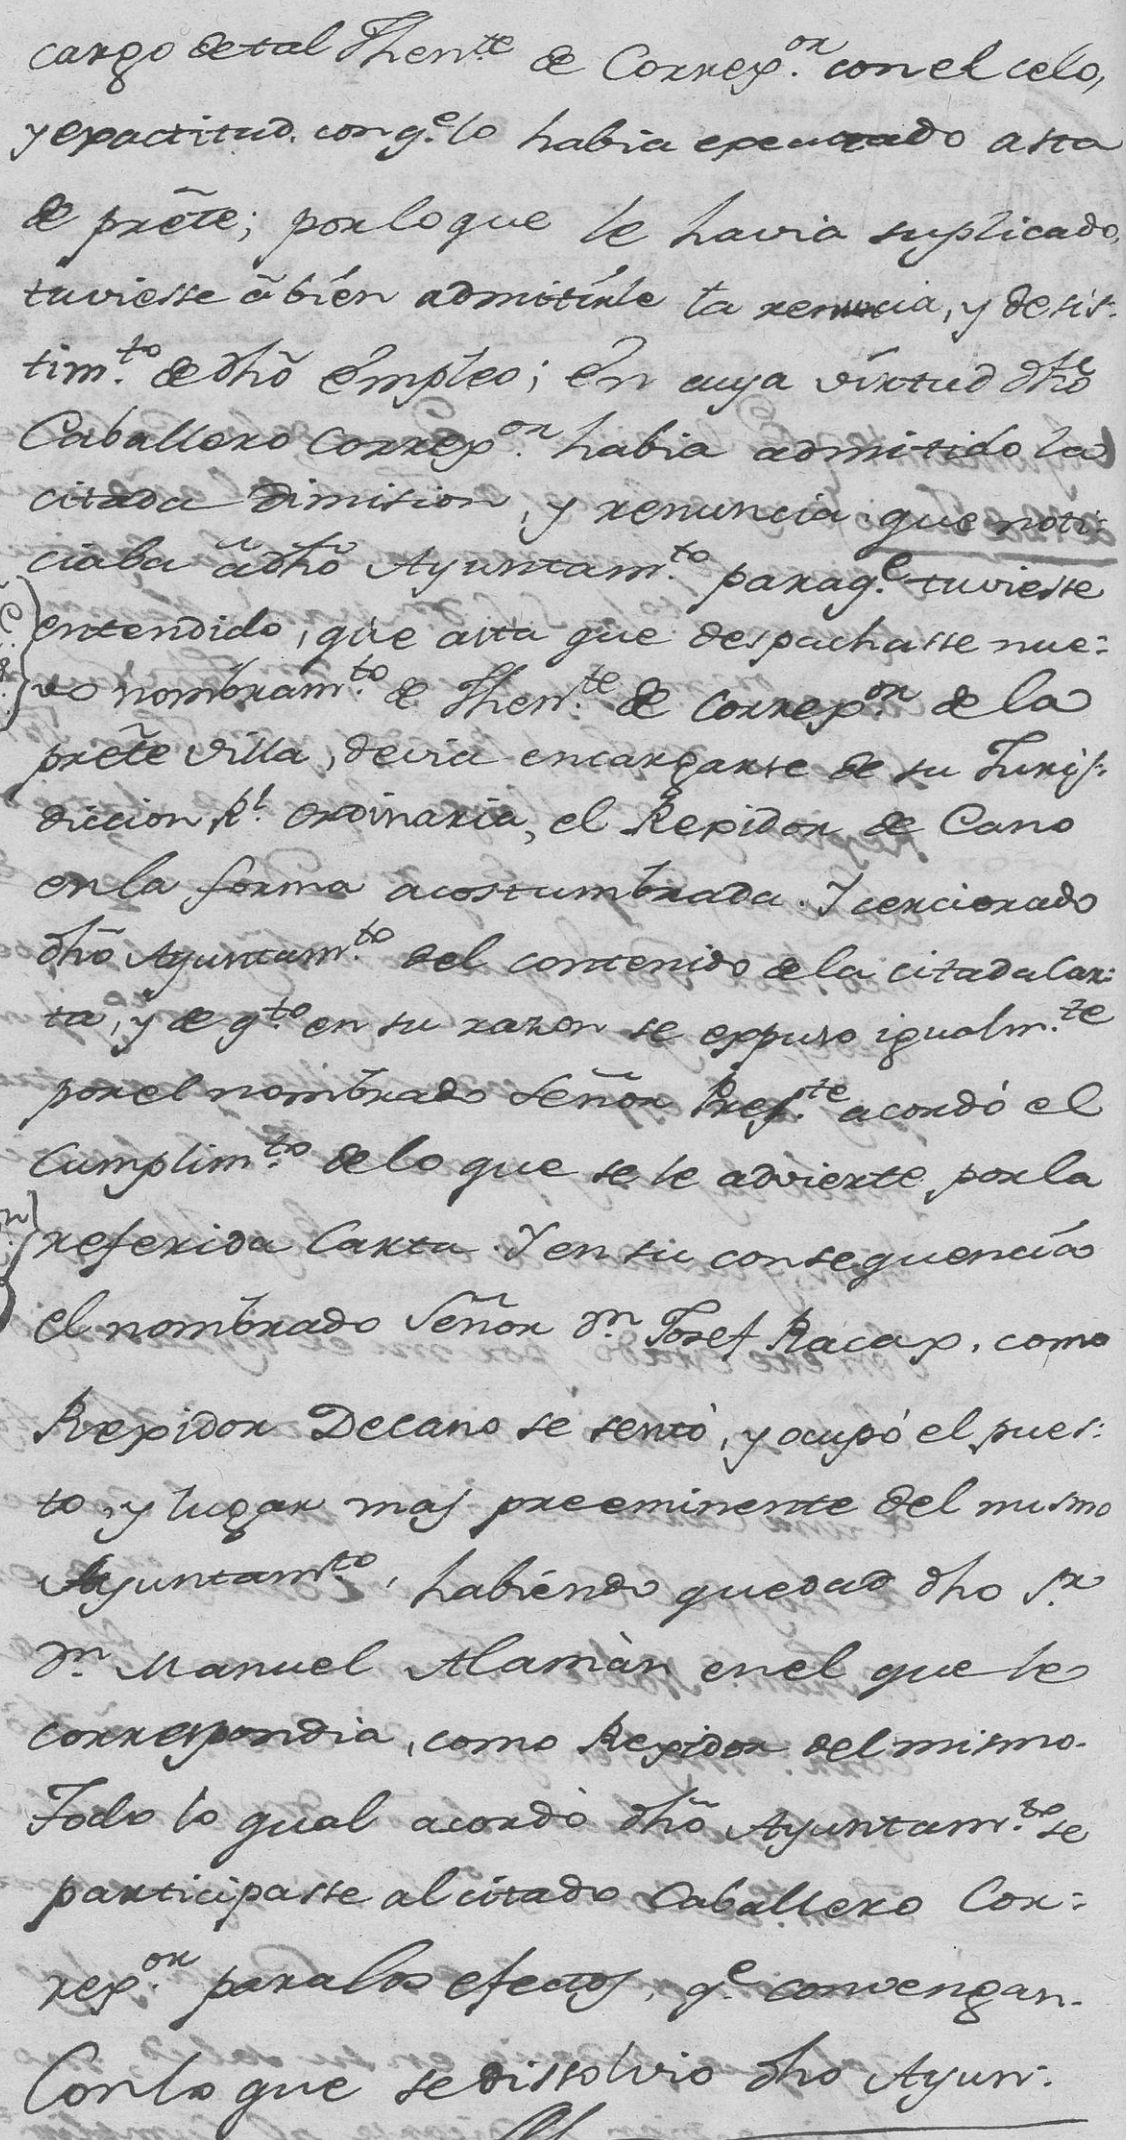 cargo de tal Thente. de Correxor. con el celo,
y exactitud. con qe. lo habia executado asta
de prẽte; por lo que le havia suplicado,
tuviesse â bién admitírle la renuncia, y desis-
timto. de dhõ émpleo; én cuya vírtud dho
Caballero Correxor. habia admitido la
citada dimision, y renuncia que noti-
ciaba â dhõ Ayuntamto. para qe. tuviesse
entendido, que asta que despachasse nue-
vo nombramto. de Thente. de Correxor. de la
prẽte villa, devia encargarse de su Juris-
diccion Rl. ordinaria, el Rexidor de Cano
en la forma acostumbrada. Y cerciorado
dhõ Ayuntamto. del contenido de la citada Car-
ta, y de qto. en su razon se expuso igualmte.
por el nombrado Señor Preste. acordó el
Cumplimto. de lo que se le advierte, por la
referida Carta. Y en su consequencía
el nombrado Señor Dn. Josef Racax, como
Rexidor Decano se sentó, y ocupó el pues-
to, y lugar mas preeminente del mismo
Ayuntamto., habiéndo quedad dho Sr.
Dn. Manuel Alamàn en el que le
correspondia, como Rexidor del mismo.
Todo lo qual acordò dhõ Ayuntamto. se
participasse al citado Caballero Cor-
rexor. para los efectos, qe. convengan.
Con lo que se dissolvio dho Ayun-